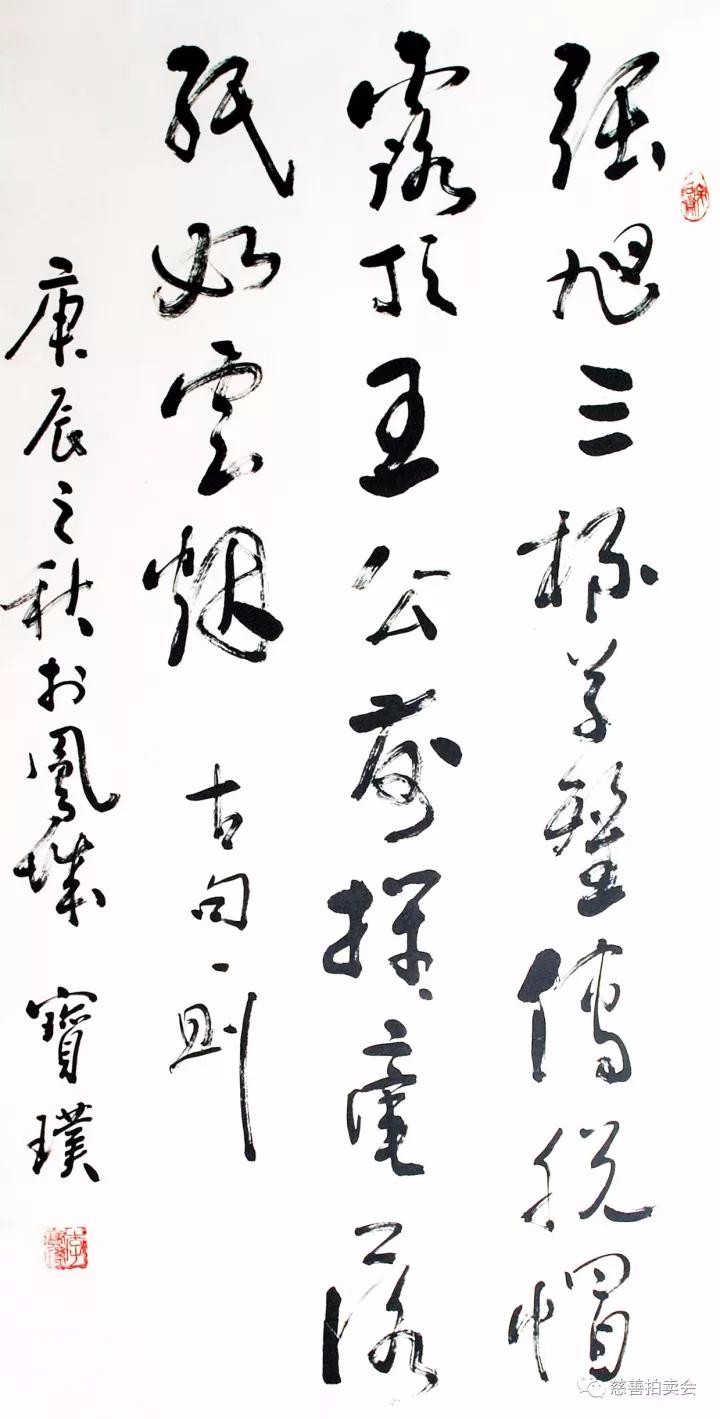 張旭三杯草聖傳脫帽
露頂王公前揮毫落
紙如雲烟 古句一則
庚辰之秋於鳳城 寶璞
慈善拍卖会